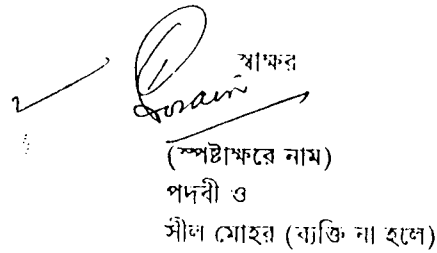 স্বাক্ষর
(স্পষ্টাক্ষরে নাম)
পদবী ও
সীল মোহর (ব্যক্তি না হলে)